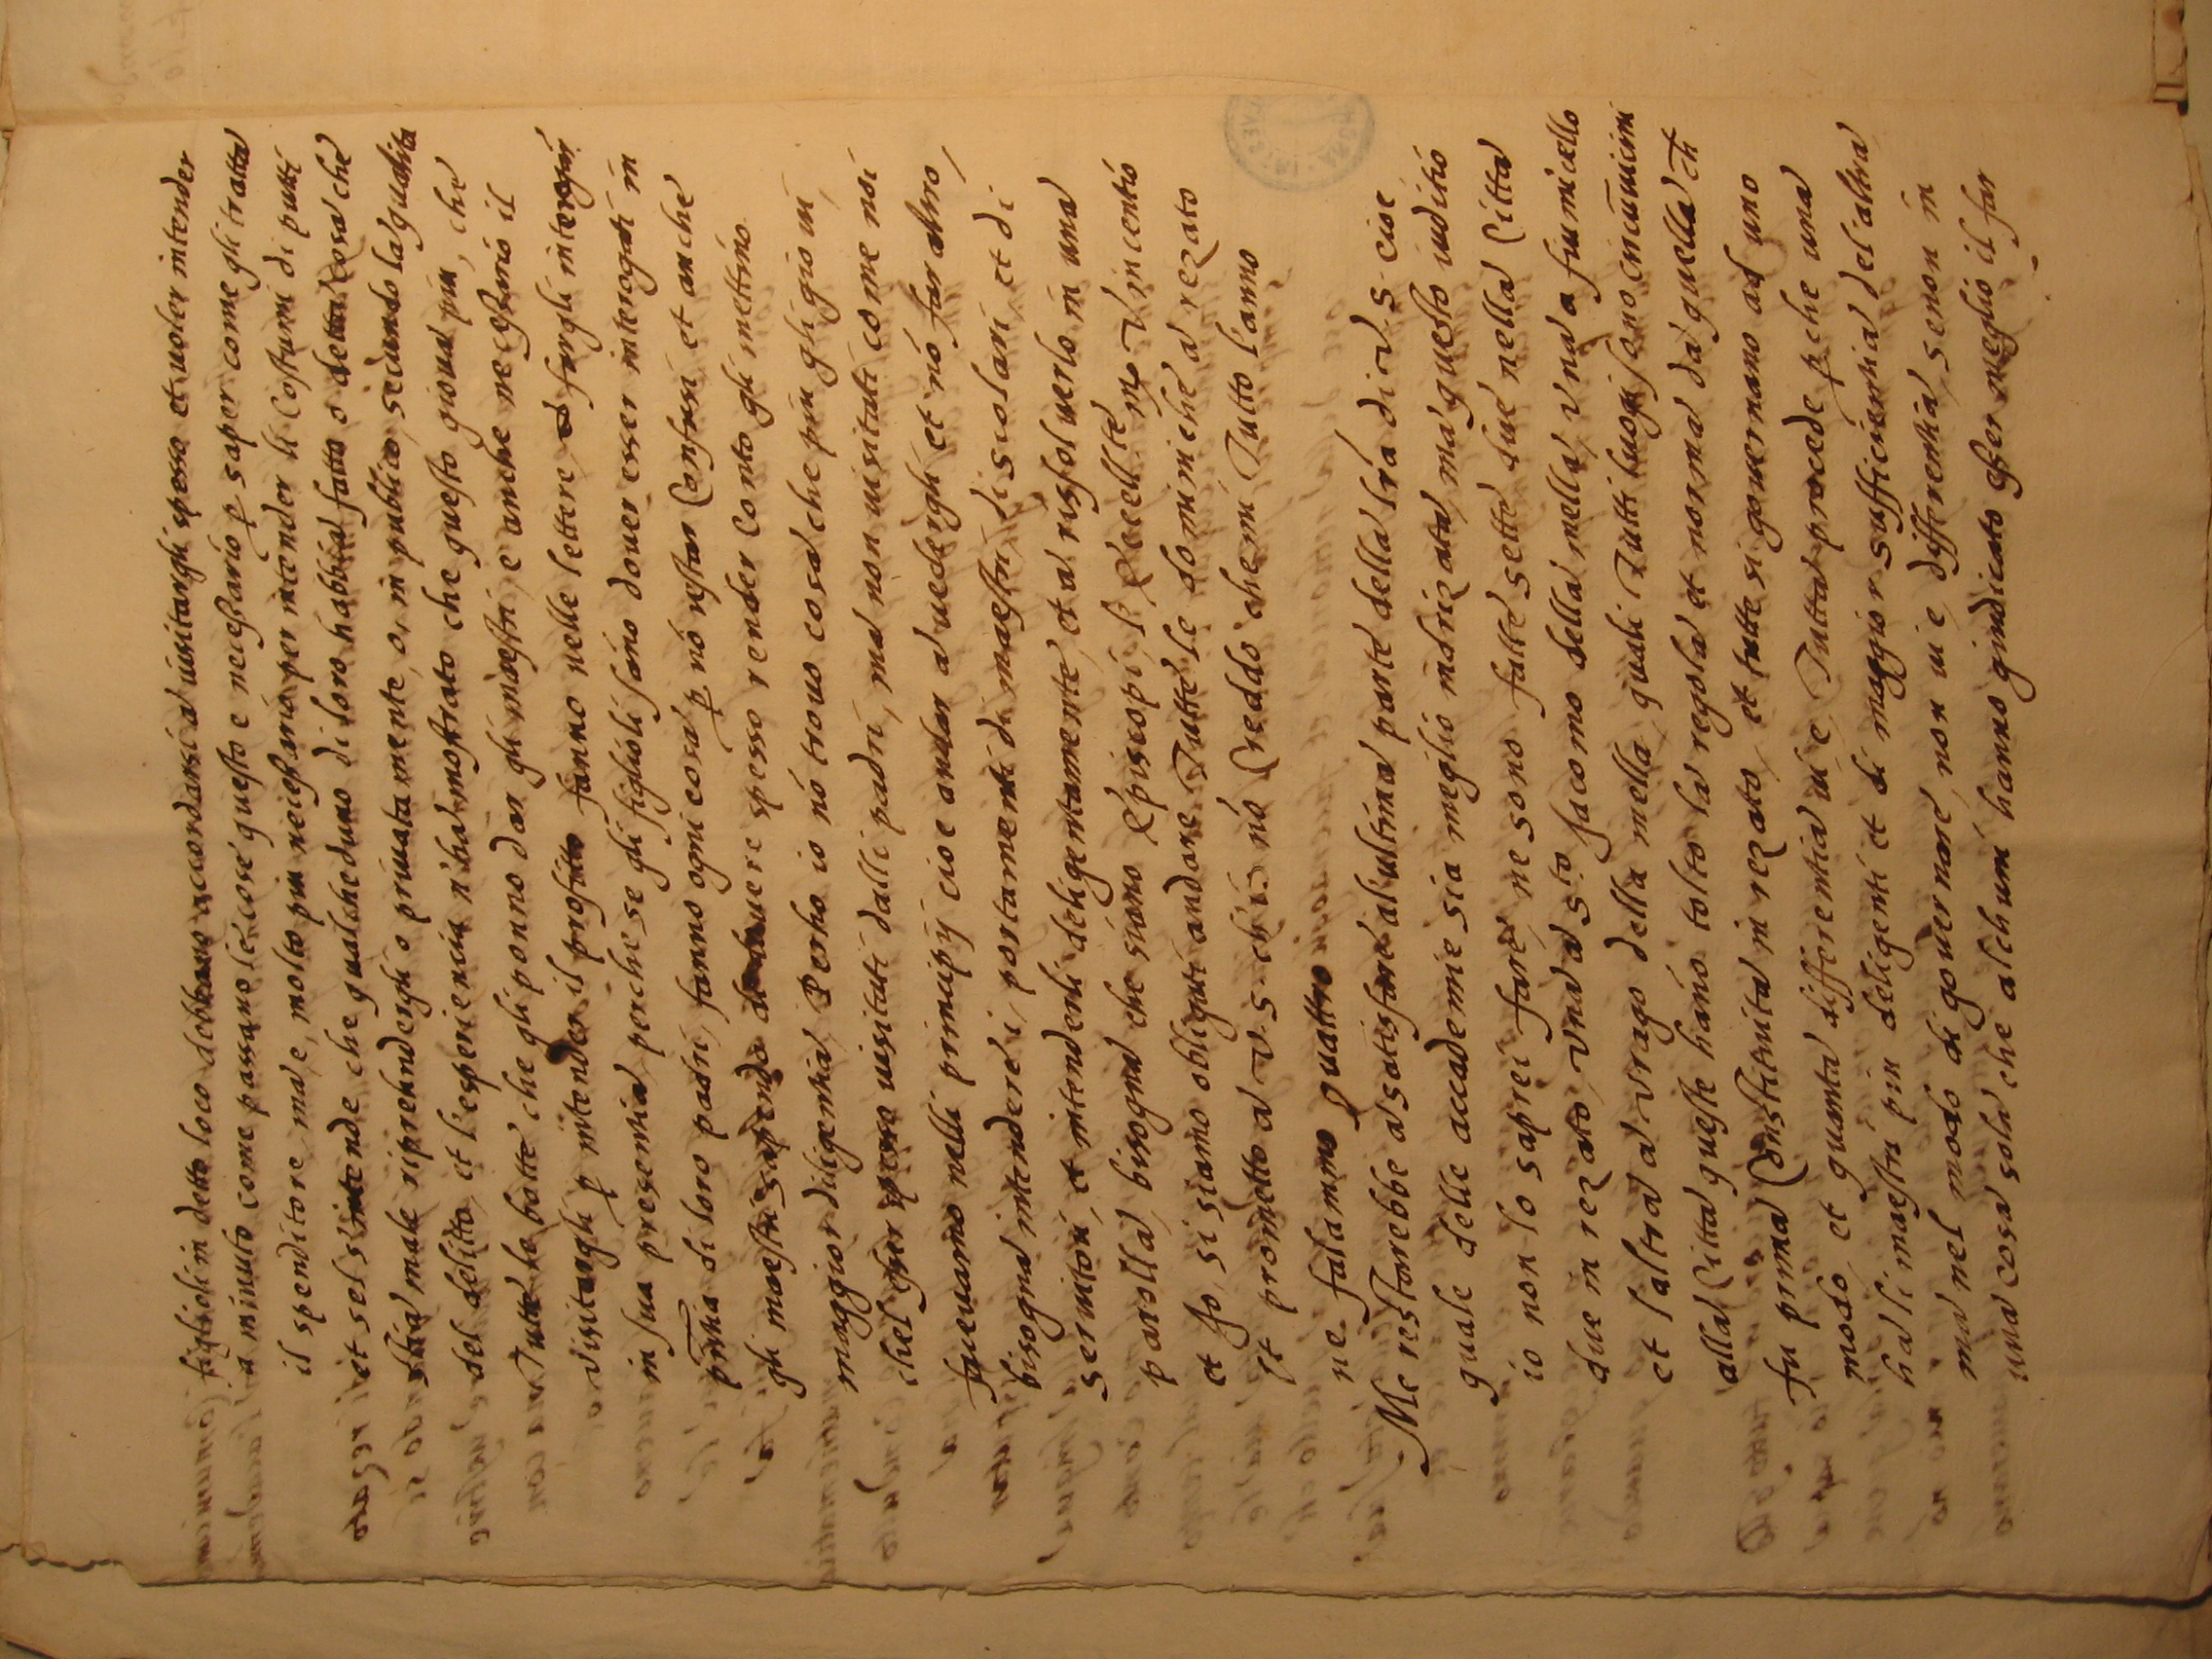 figlioli in detto loco debbano accordarsi a visitargli spesso et voler intender
a minuto come passano le cose questo e necessario p saper come gli tratta
il spenditore ma e, molto piu necessario per intender li costumi di putti
et sel s'intende che qualcheduno di loro habbia fatto o detta cosa che
stia male riprehendergli o privatamente, o, in publico, secundo la qualita
del delitto, et l'esperiencia n'ha mostrato che questo giova piu, che
Tutte le botte che gli ponno dar gli maestri, e anche necessario il
visitargli p intender il profitto fanno nelle lettere et fargli interogar
in sua presentia, perche se gli figlioli sano dover esser interogati in
pñtia di loro padri, fanno ogni cosa p nō restar Confusi et anche
gli maestri sapendo di havere spesso render conto gli mettino
maggior diligentia, Perho io nō trovo cosa che piu gli giovi,
chel esser spesso visitati dalli padri, ma non visitati come noi
facevamo nelli principij cioe andar a vedergli et nō far altro,
bisogna intendere i, portamenti di maestri, di scolari, et di
servitori, et intenderli deligentamente, et a rissolverlo in una
parolla, bisogna che siano Episcopi, l' Eccellte mr Vincentio
et Jo, si siamo obligati andare Tutte le dominiche a rezato
et prometto a V. S. ch'io nō Creddo che mi Tutto l'anno
ne falammo Quattro
Me restarebbe a satisfare al ultima parte della lrā di V. S. cioe
quale delle accademie sia meglio indrizata, ma questo iuditio
io non lo saprei fare, ne sono fatte sette, due nella Citta
due in rezato, una a sto Jacomo della mella, una a fiumicello
et laltra a Vrago della mella, quali Tutti luoghi sono circūvicini
alla Citta queste hano tolto la regola et norma da quella ch
fu prima Constituita in rezato, et tutte si governano ad uno
modo, et quanta differentia vi e, Tutta procede p che una
ha li maestri piu deligenti et di maggior sufficientia del altra,
ma nel modo di governare, non vi e differentia, se non in
una cosa sola che alchuni hanno giudicato esser meglio il far